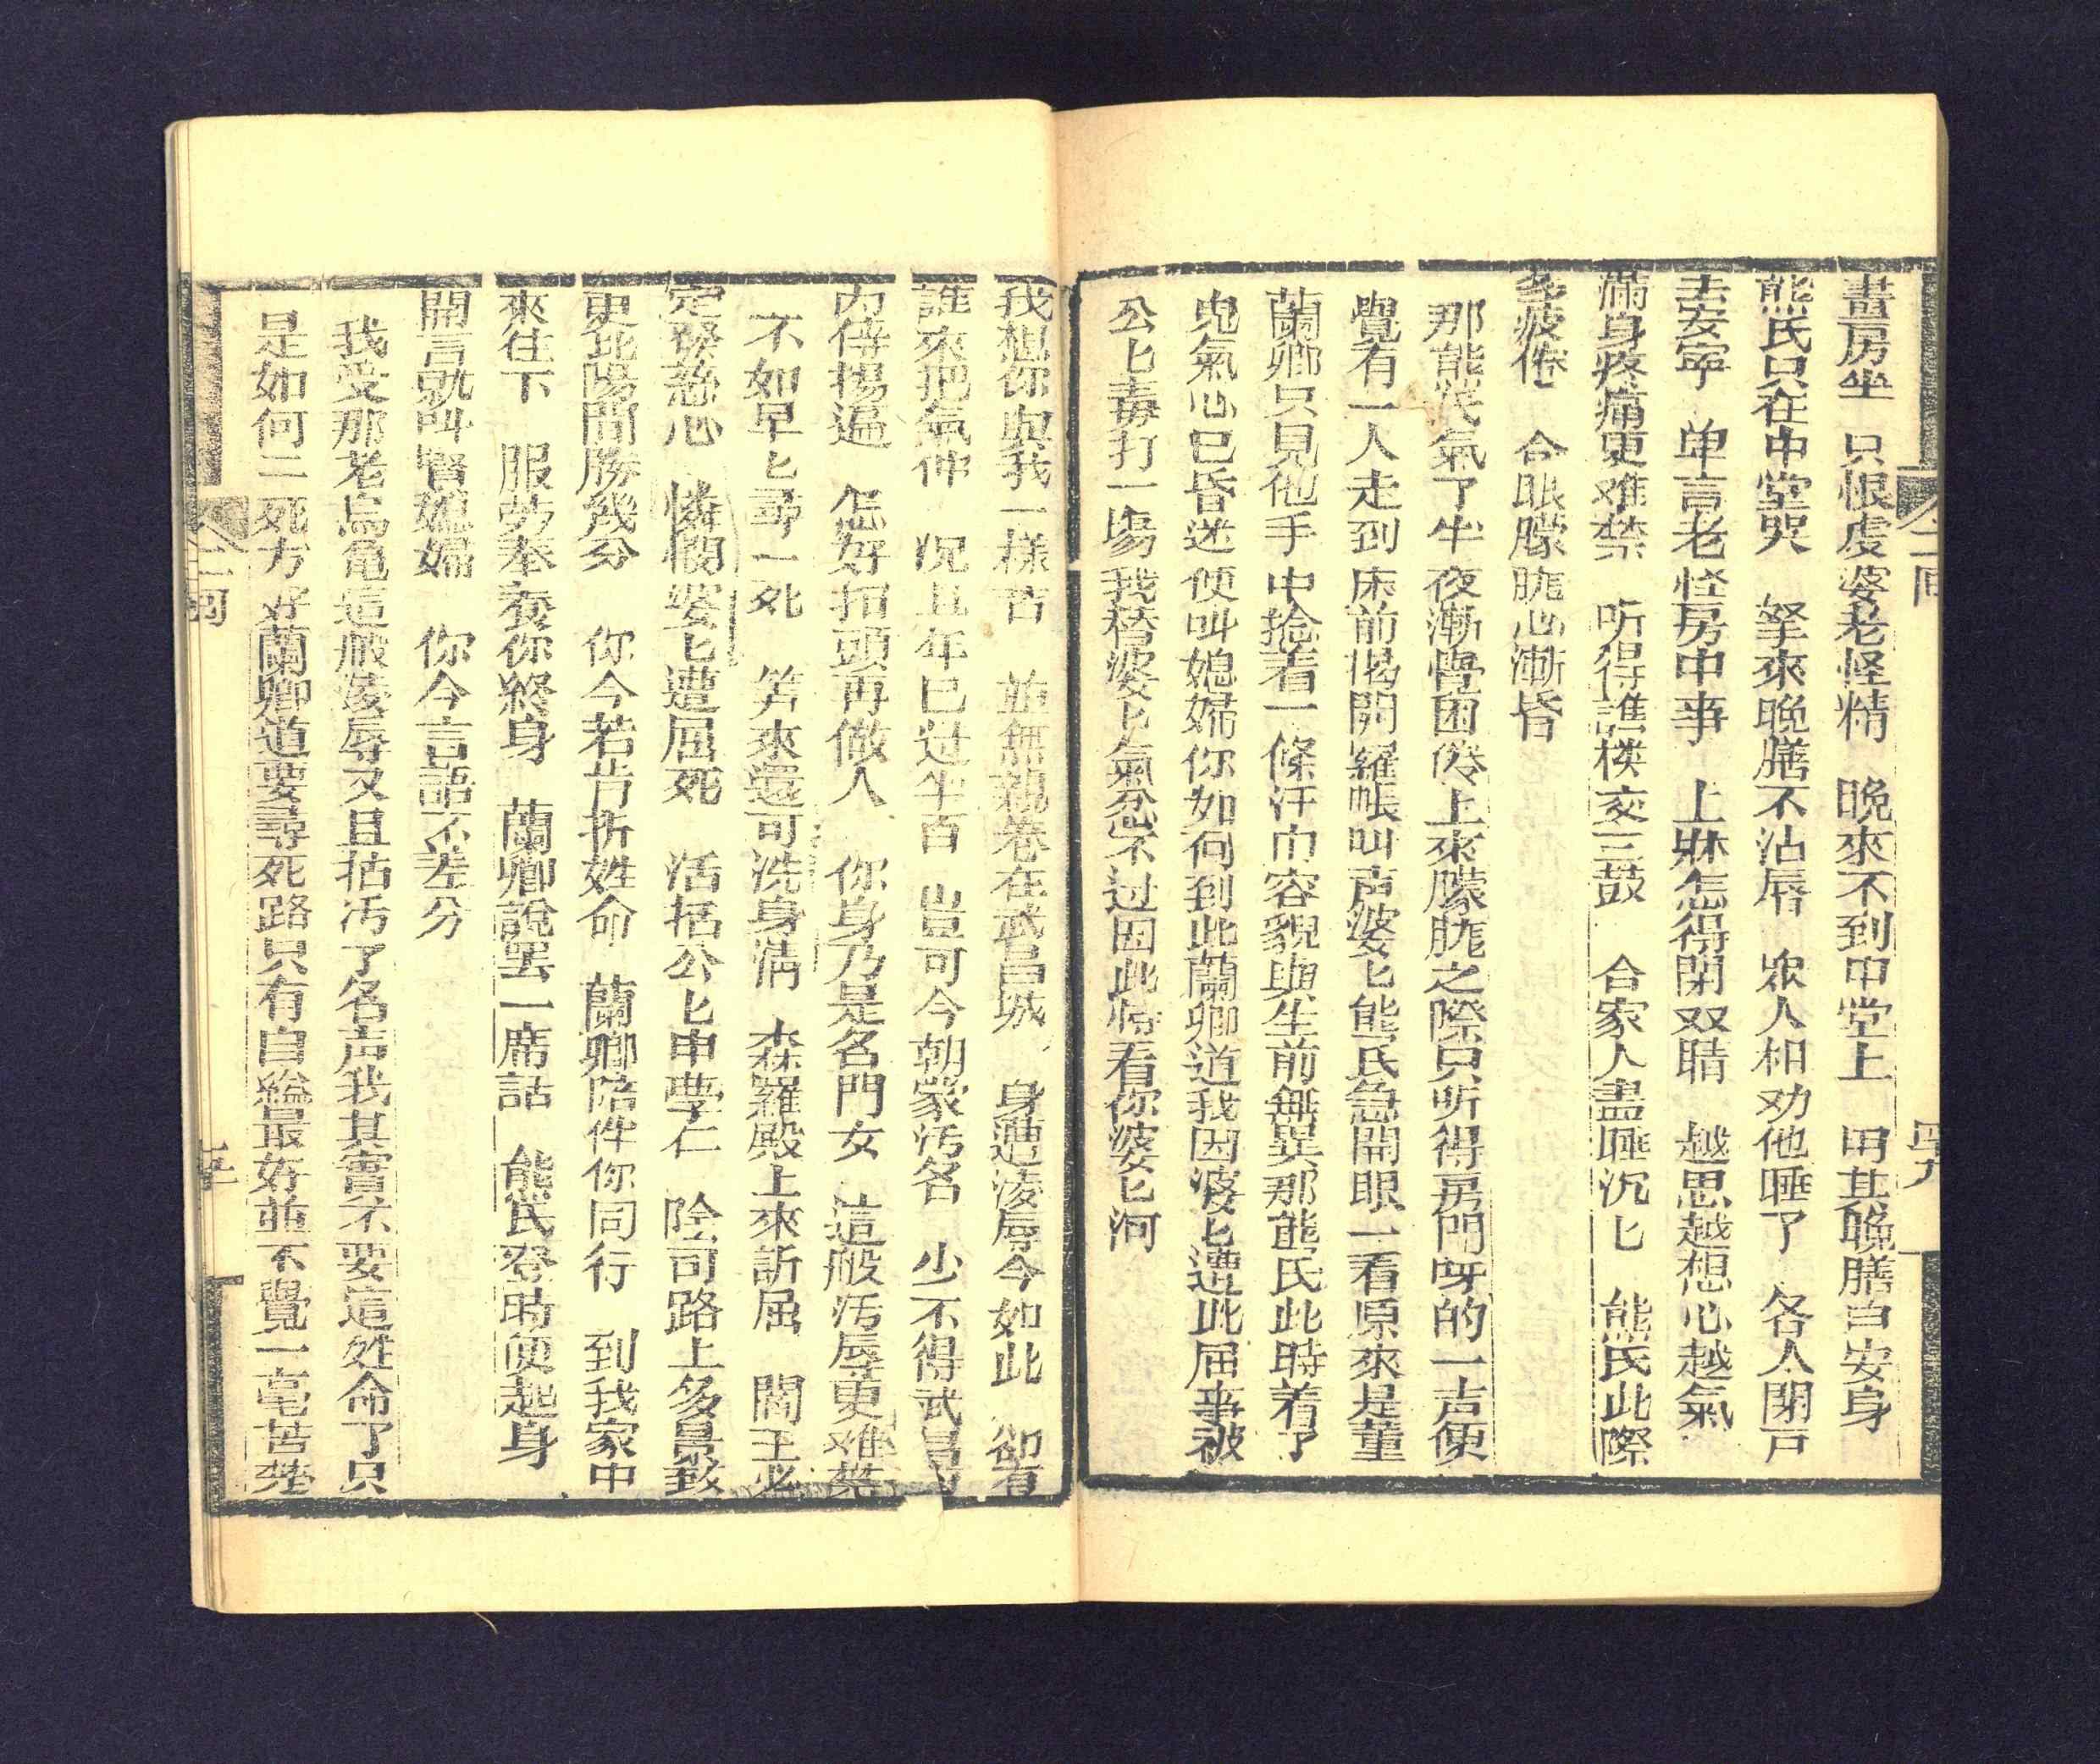 畫房坐　只恨虔婆老怪精　晚來不到中堂上　用其晚膳自安身
熊氏只在中堂哭　拏來晚膳不沾唇　眾人相劝他睡了　各人閉戸
去安寧　单言老怪房中事　上牀怎得閉双睛　越思越想心越氣
滿身疼痛更难禁　听得譙楼交三鼓　合家人盡睡沉匕　熊氏此際
多疲倦　合眼朦朧心漸昏
那熊氏氣了半夜漸覺困倦上來朦朧之際只听得房門呀的一声便
覺有一人走到床前揭開羅帳叫声婆匕熊氏急開眼一看原來是董
蘭卿只見他手中捻着一條汗巾容貌與生前無異那熊氏此時着了
鬼氣心已昏迷便叫媳婦你如何到此蘭卿道我因婆匕遭此屈事被
公匕毒打一塲我替婆匕氣忿不过因此特看你婆匕河
我想你與我一樣苦　並無親眷在武昌城　身遭淩辱今如此　卻有
誰來把氣伸　况且年已过半百　豈可今朝蒙汚名　少不得武昌
內傳揚遍　怎好抬頭再做人　你身乃是名門女　這般汚辱更难禁
不如早匕尋一死　笄來還可洗身清　森羅殿上來訴屈　閻王必
定發慈心　憐憫婆匕遭屈死　活捉公匕申學仁　陰司路上多景致
更比陽間勝幾分　你今若肯拚姓命　蘭卿陪伴你同行　到我家中
來住下　服劳奉養你終身　蘭卿說罢一席話　熊氏登時便起身
開言就叫賢媳婦　你今言語不差分
我受那老烏亀這般淩辱又且括汚了名声我其實不要這姓命了只
是如何一死方好蘭卿道要尋死路只有自縊最好並不覺一毫苦楚